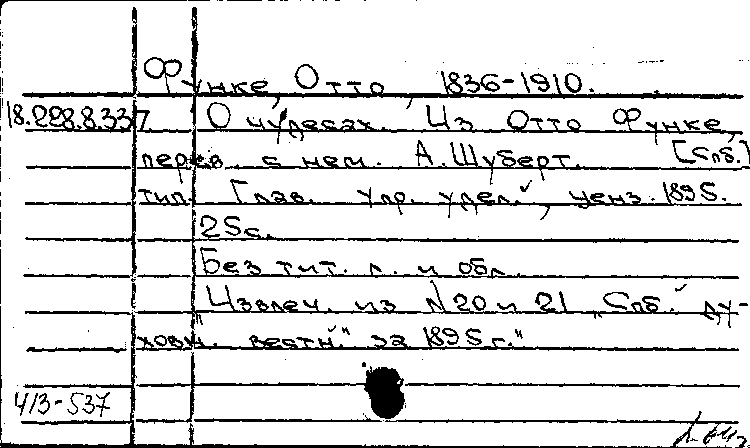 Функе, Отто, 1836-1910.
18.228.8.337 О чудесах. Из Отто Функе,
перев. с нем. А. Шуберт. [Спб.]
тип. Глав. упр. удел., ценз. 1895.
25с.
Без тит. л. и обл.
Извлеч. из N 20 и 21 „Спб. ду-
ховн. вестн." за 1895 г."
413-537